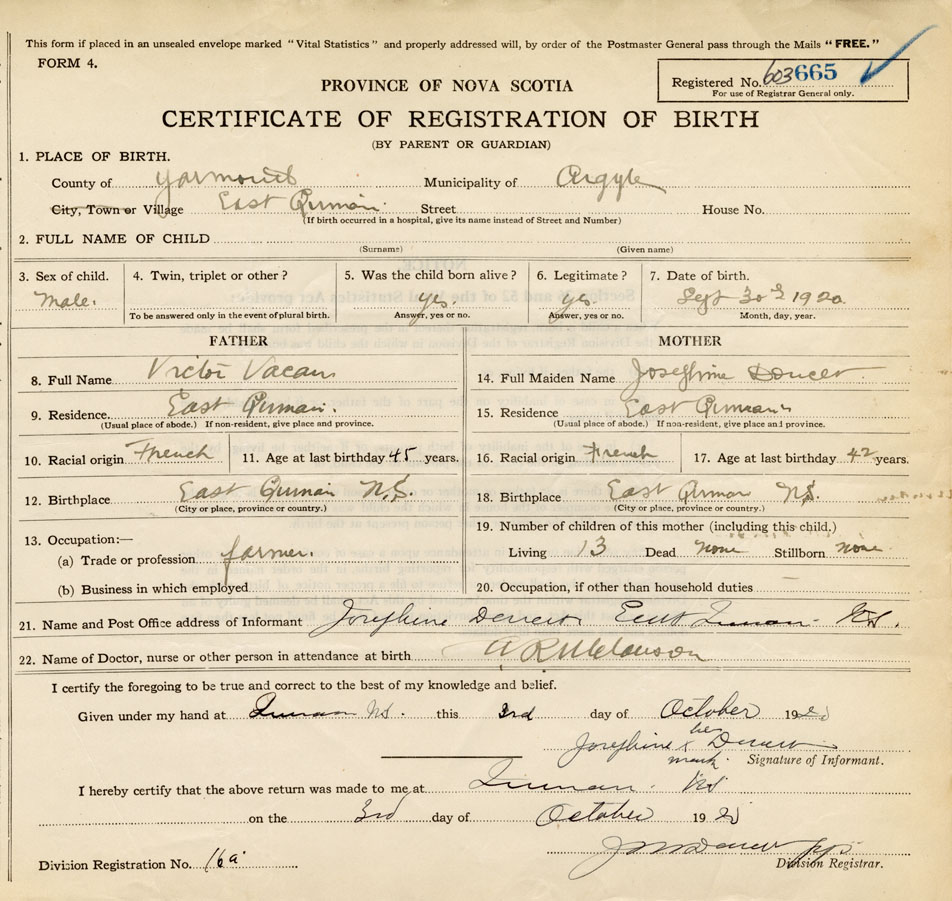 This form if placed in an unsealed envelope marked "Vital Statistics" and properly addressed will, by order of the Postmaster General pass through the Mails "FREE."
FORM 4.
Registered No. 603665
For use of Registrar General only.
PROVINCE OF NOVA SCOTIA
CERTIFICATE OF REGISTRATION OF BIRTH
(BY PARENT OR GUARDIAN)
1. PLACE OF BIRTH.
County of Yarmouth Municipality of Argyle
City, Town or Village East Quinan Street House No.
(If birth occurred in a hospital, give its name instead of Street and Number)
2. FULL NAME OF CHILD
(Surname) (Given name)
3. Sex of child. 4. Twin, triplet or other? 5. Was the child born alive? 6. Legitimate? 7. Date of birth.
Male. yes. yes. Sept 30 1920
To be answered only in the event of plural birth. Answer, yes or no. Answer, yes or no. Month, day, year.
FATHER MOTHER
8. Full Name Victor 14. Full Maiden Name Josephine Doucet
9. Residence. East Quinan. 15. Residence East Quinan
(Usual place of abode.) If non-resident, give place and province. (Usual place of abode.) If non-resident, give place and province.
10. Racial origin French 11. Age at last birthday 45 years. 16. Racial origin French 17. Age at last birthday 42 years.
12. Birthplace East Quinan N.S. 18. Birthplace East Quinan N.S.
(City or place, province or country.) (City or place, province or country.)
19. Number of children of this mother (including this child.)
13. Occupation:—
(a) Trade or profession farmer. Living 13 Dead none Stillborn none
(b) Business in which employed 20. Occupation, if other than household duties —
21. Name and Post Office address of Informant Josephine East Quinan NS.
22. Name of Doctor, nurse or other person in attendance at birth
I certify the foregoing to be true and correct to the best of my knowledge and belief.
Given under my hand at Quinan NS. this 3rd day of October 19
her
Josephine x
mark Signature of Informant.
I hereby certify that the above return was made to me at Quinan NS
on the 3rd day of October 19
Division Registration No. 16a Division Registrar.